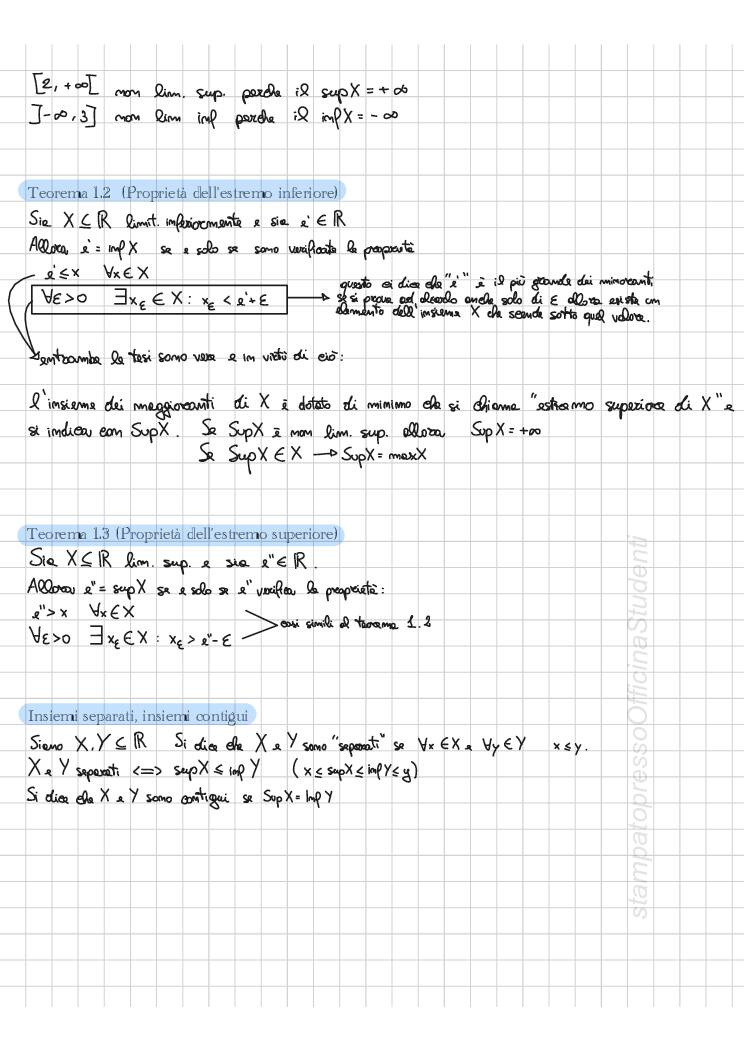 [2, +∞[ non lim. sup. perche il supX = +∞
]-∞, 3] non lim inf perche il infX = -∞
Teorema 1.2 (Proprietà dell'estremo inferiore)
Sia X ⊆ ℝ limit. inferiormente e sia e' ∈ ℝ
Allora e' = inf X se e solo se sono verificate le proprietà
e' ≤ x ∀x ∈ X
∀ε>0 ∃xε ∈ X : xε < e'+ε
questo ci dice che "e'" è il più grande dei minoranti
se si prova ad alzarlo anche solo di ε allora esiste un
elemento dell'insieme X che scende sotto quel valore.
entrambe le tesi sono vere e in virtù di ciò:
l'insieme dei maggioranti di X è dotato di minimo che si chiama "estremo superiore di X" e
si indica con SupX. Se SupX è non lim. sup. allora SupX = +∞
Se SupX ∈ X → SupX = maxX
Teorema 1.3 (Proprietà dell'estremo superiore)
Sia X ⊆ ℝ lim. sup. e sia e'' ∈ ℝ.
Allora e'' = supX se e solo se e'' verifica le proprietà:
e'' > x ∀x ∈ X
∀ε>0 ∃xε ∈ X : xε > e''-ε
cosi simili al teorema 1.2
Insiemi separati, insiemi contigui
Siano X,Y ⊆ ℝ Si dice che X e Y sono "separati" se ∀x ∈ X e ∀y ∈ Y x ≤ y.
X e Y separati <=> supX ≤ inf Y (x ≤ supX ≤ infY ≤ y)
Si dice che X e Y sono contigui se SupX = Inf Y
stampatopressoOfficinaStudenti